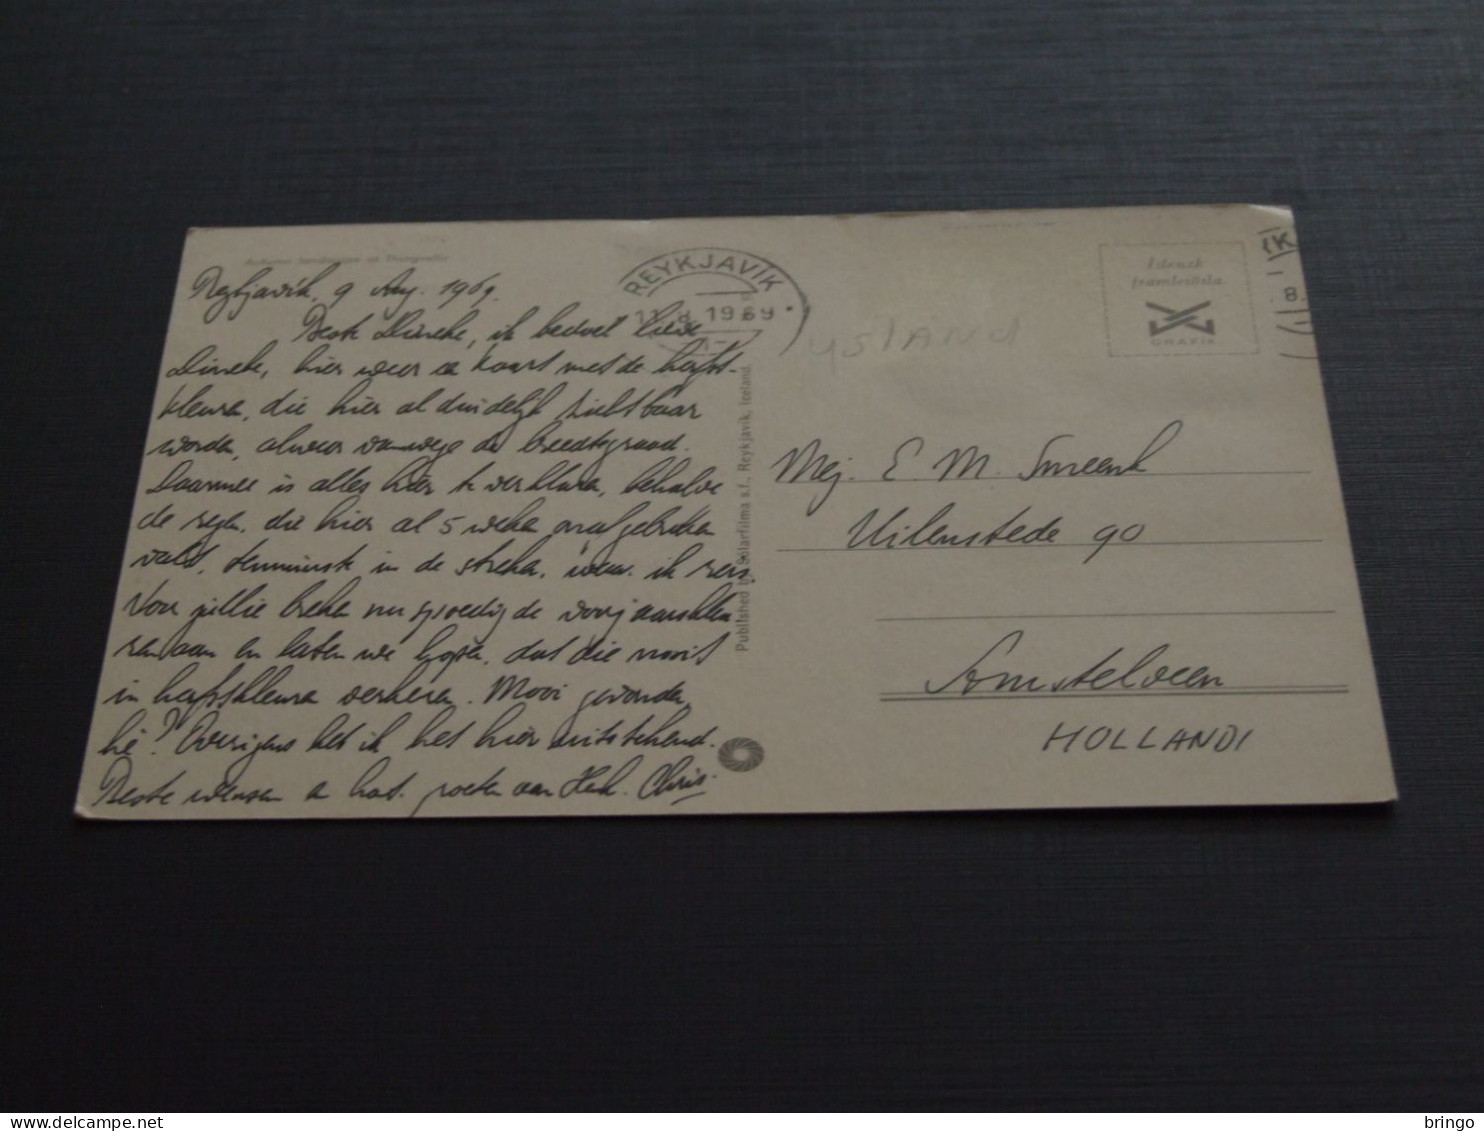 Autumn landscape at Thingvellir
Reykjavik, 9 Aug. 1969.
Beste Dineke, ik bedoel lieve
Dineke, hier weer een kaart met de herfst-
kleuren, die hier al duidelijk zichtbaar
worden, alweer vanwege de breedtegraad.
Daarmee is alles hier te verklaren, behalve
de regen, die hier al 5 weken onafgebroken
valt, tenminste in de streken, waar ik reis.
Voor jullie breken nu spoedig de voorjaarskleu
ren aan en laten we hopen, dat die nooit
in herfstkleuren verkeren. Mooi gevonden,
hè? Overigens het ik het hier uitstekend.
Beste wensen en hart. groeten aan Henk. Chris.
REYKJAVÍK
11. 8. 1969
YSLAND
Íslenzk
framleiðsla.
GRAFÍK
ÍK
8.
Published by Sólarfilma s.f., Reykjavik, Iceland.
Mej. E. M. Smeenk
Uilenstede 90
Amstelveen
HOLLANDI
bringo